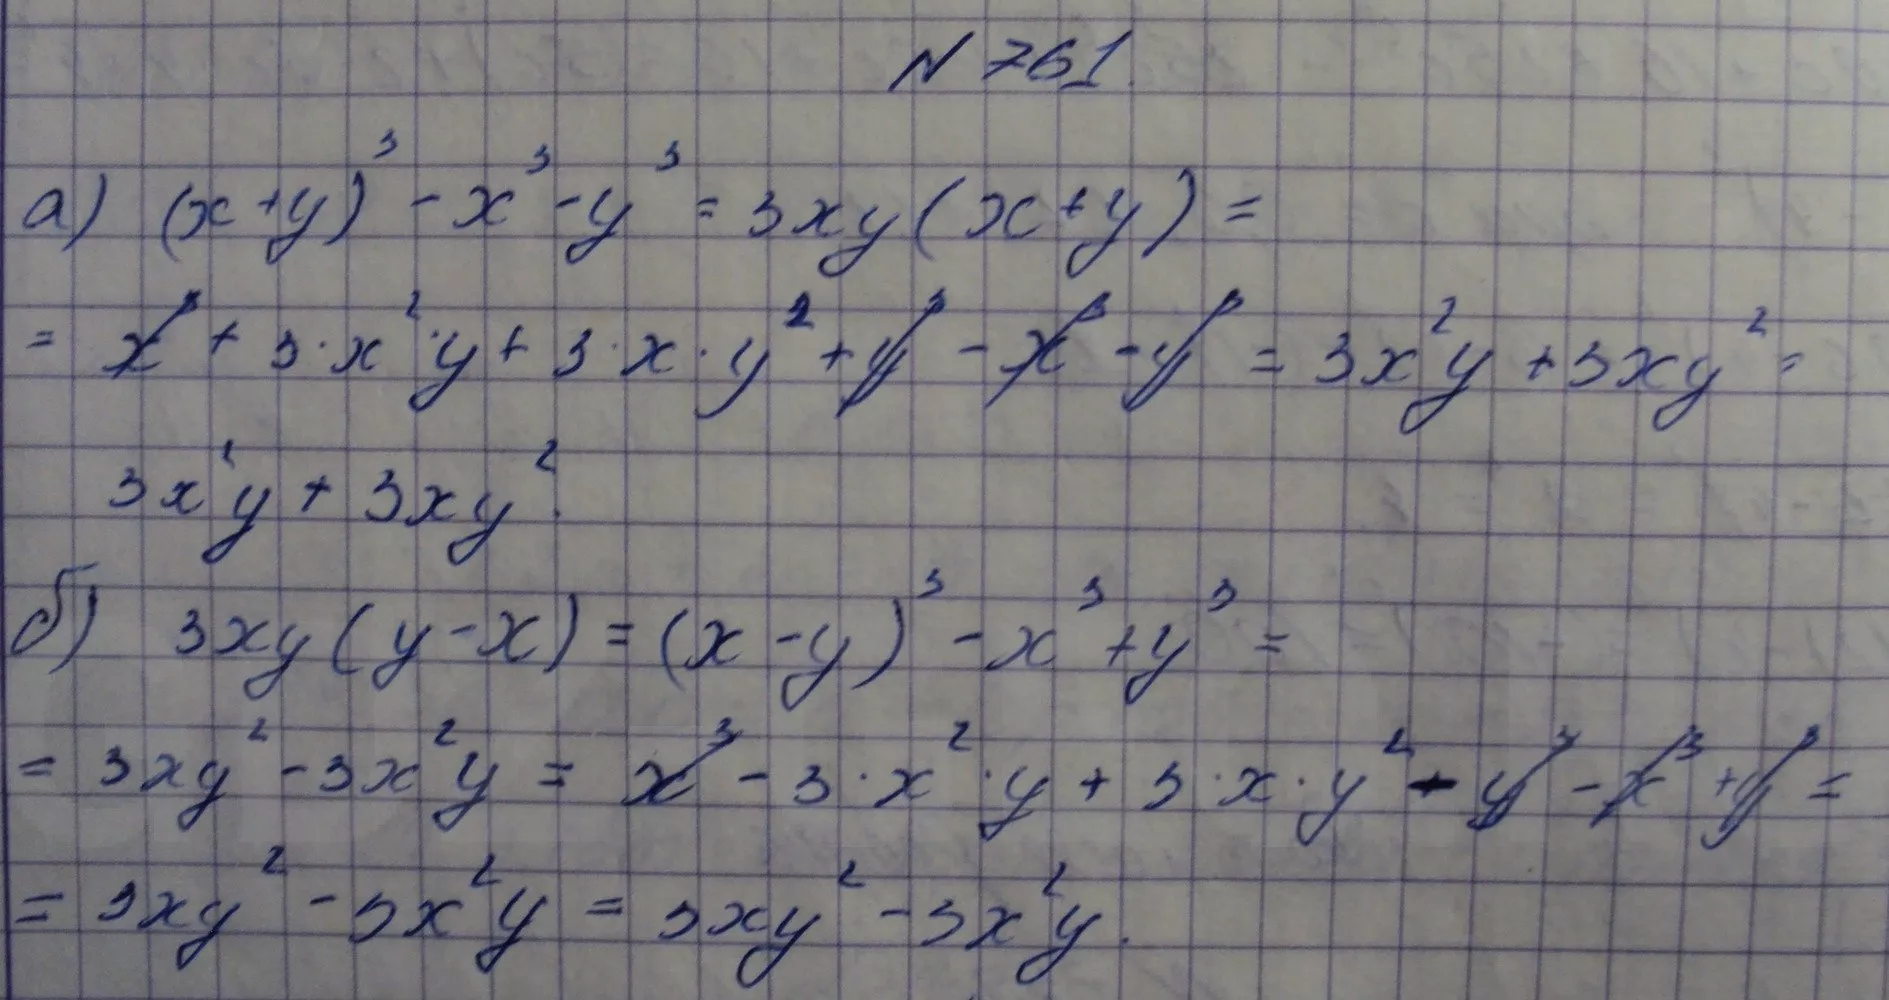 N 761.
а) (x+y)³ - x³ - y³ = 3xy(x+y) =
= x³ + 3·x²·y + 3·x·y² + y³ - x³ - y³ = 3x²y + 3xy² =
3x²y + 3xy².
б) 3xy(y-x) = (x-y)³ - x³ + y³ =
= 3xy² - 3x²y = x³ - 3·x²·y + 3·x·y² - y³ - x³ + y³ =
= 3xy² - 3x²y = 3xy² - 3x²y.